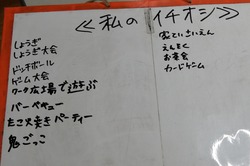 ≪私のイチオシ≫
しょうぎ
しょうぎ大会
ドッチボール
ゲーム大会
ワーク広場で遊ぶ
バーベキュー
たこ火尭きパーティー
鬼ごっこ
家ていさいえん
えんそく
お茶会
カードゲーム